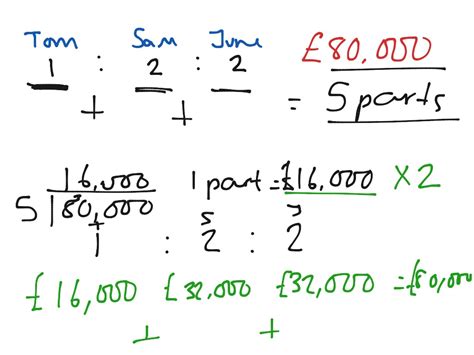 Tom Sam June
1 : 2 : 2 £80,000
+ + = 5 parts
16,000 1 part = £16,000 × 2
5 80,000
+ S J
1 : 2 : 2
£16,000 £32,000 £32,000 = £80,000
+ +